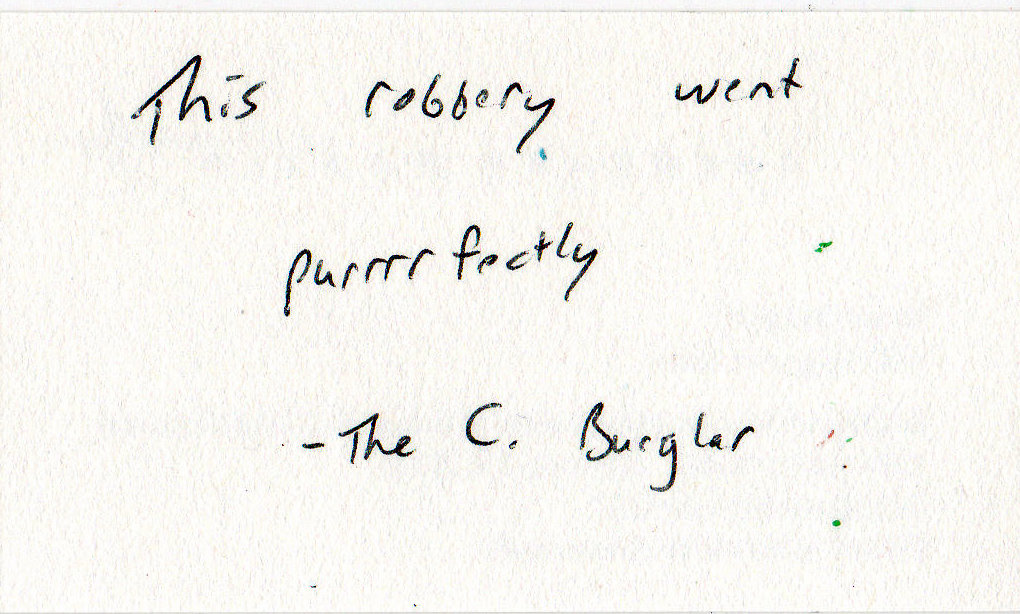 This robbery went
purrrrfectly
-The C. Burglar